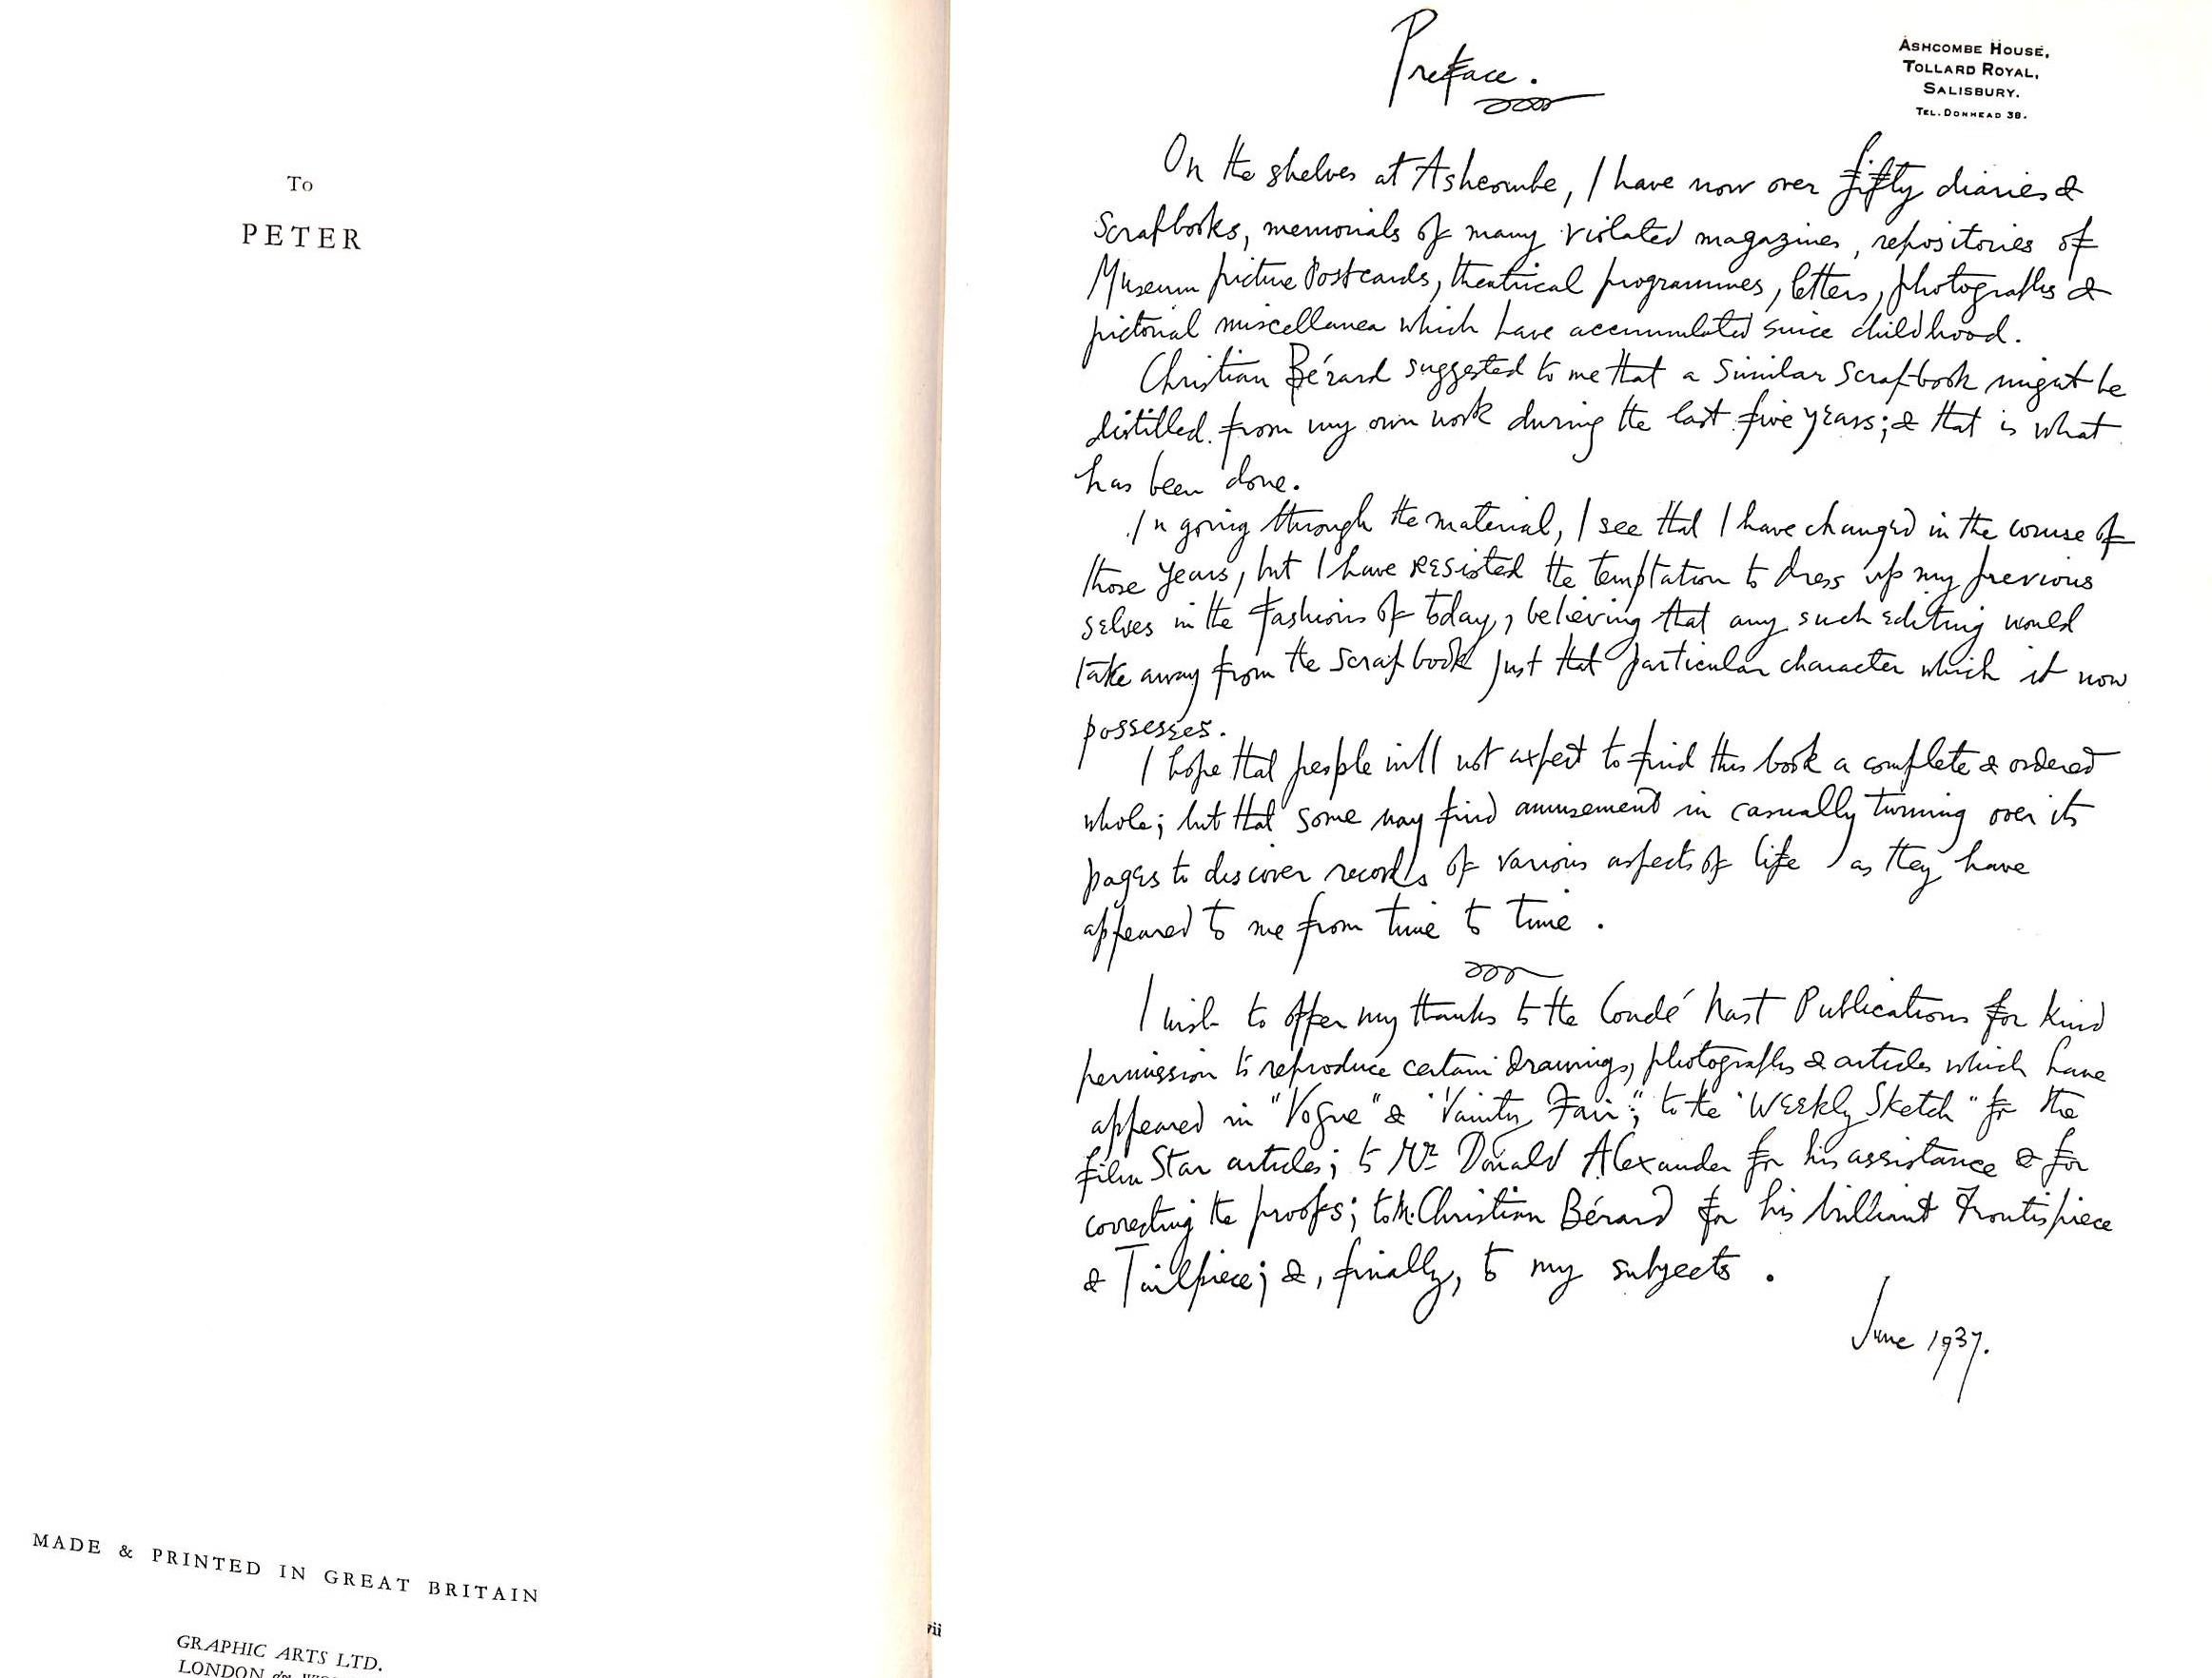 To
PETER
MADE & PRINTED IN GREAT BRITAIN
GRAPHIC ARTS LTD.
LONDON
Preface.
ASHCOMBE HOUSE,
TOLLARD ROYAL,
SALISBURY.
TEL. DONHEAD 38.
On the shelves at Ashcombe, I have now over fifty diaries &
Scrapbooks, memorials of many violated magazines, repositories of
Museum picture Postcards, theatrical programmes, letters, photographs &
pictorial miscellanea which have accumulated since childhood.
Christian Bérard suggested to me that a similar Scrapbook might be
distilled from my own work during the last five years; & that is what
has been done.
In going through the material, I see that I have changed in the course of
those years, but I have resisted the temptation to dress up my previous
selves in the fashions of today, believing that any such editing would
take away from the scrapbook just that particular character which it now
possesses.
I hope that people will not expect to find this book a complete & ordered
whole; but that some may find amusement in casually turning over its
pages to discover records of various aspects of life as they have
appeared to me from time to time.
I wish to offer my thanks to the Condé Nast Publications for kind
permission to reproduce certain drawings, photographs & articles which have
appeared in "Vogue" & "Vanity Fair"; to the "Weekly Sketch" for the
film Star articles; to Mr Donald Alexander for his assistance & for
correcting the proofs; to M. Christian Bérard for his brilliant Frontispiece
& Tailpiece; &, finally, to my subjects.
June 1937.
vii